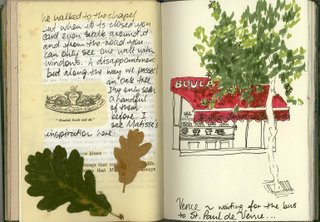 We walked to the chapel
but when it is closed you
cant even walk around it
and from the road you
can only see one wall with
windows. A disappointment
but along the way we passed
an oak tree
I've only seen
a handful
of them
before. I
see Matisse's
inspiration here.
BOULA
Vence ~ waiting for the bus
to St. Paul de Vence...